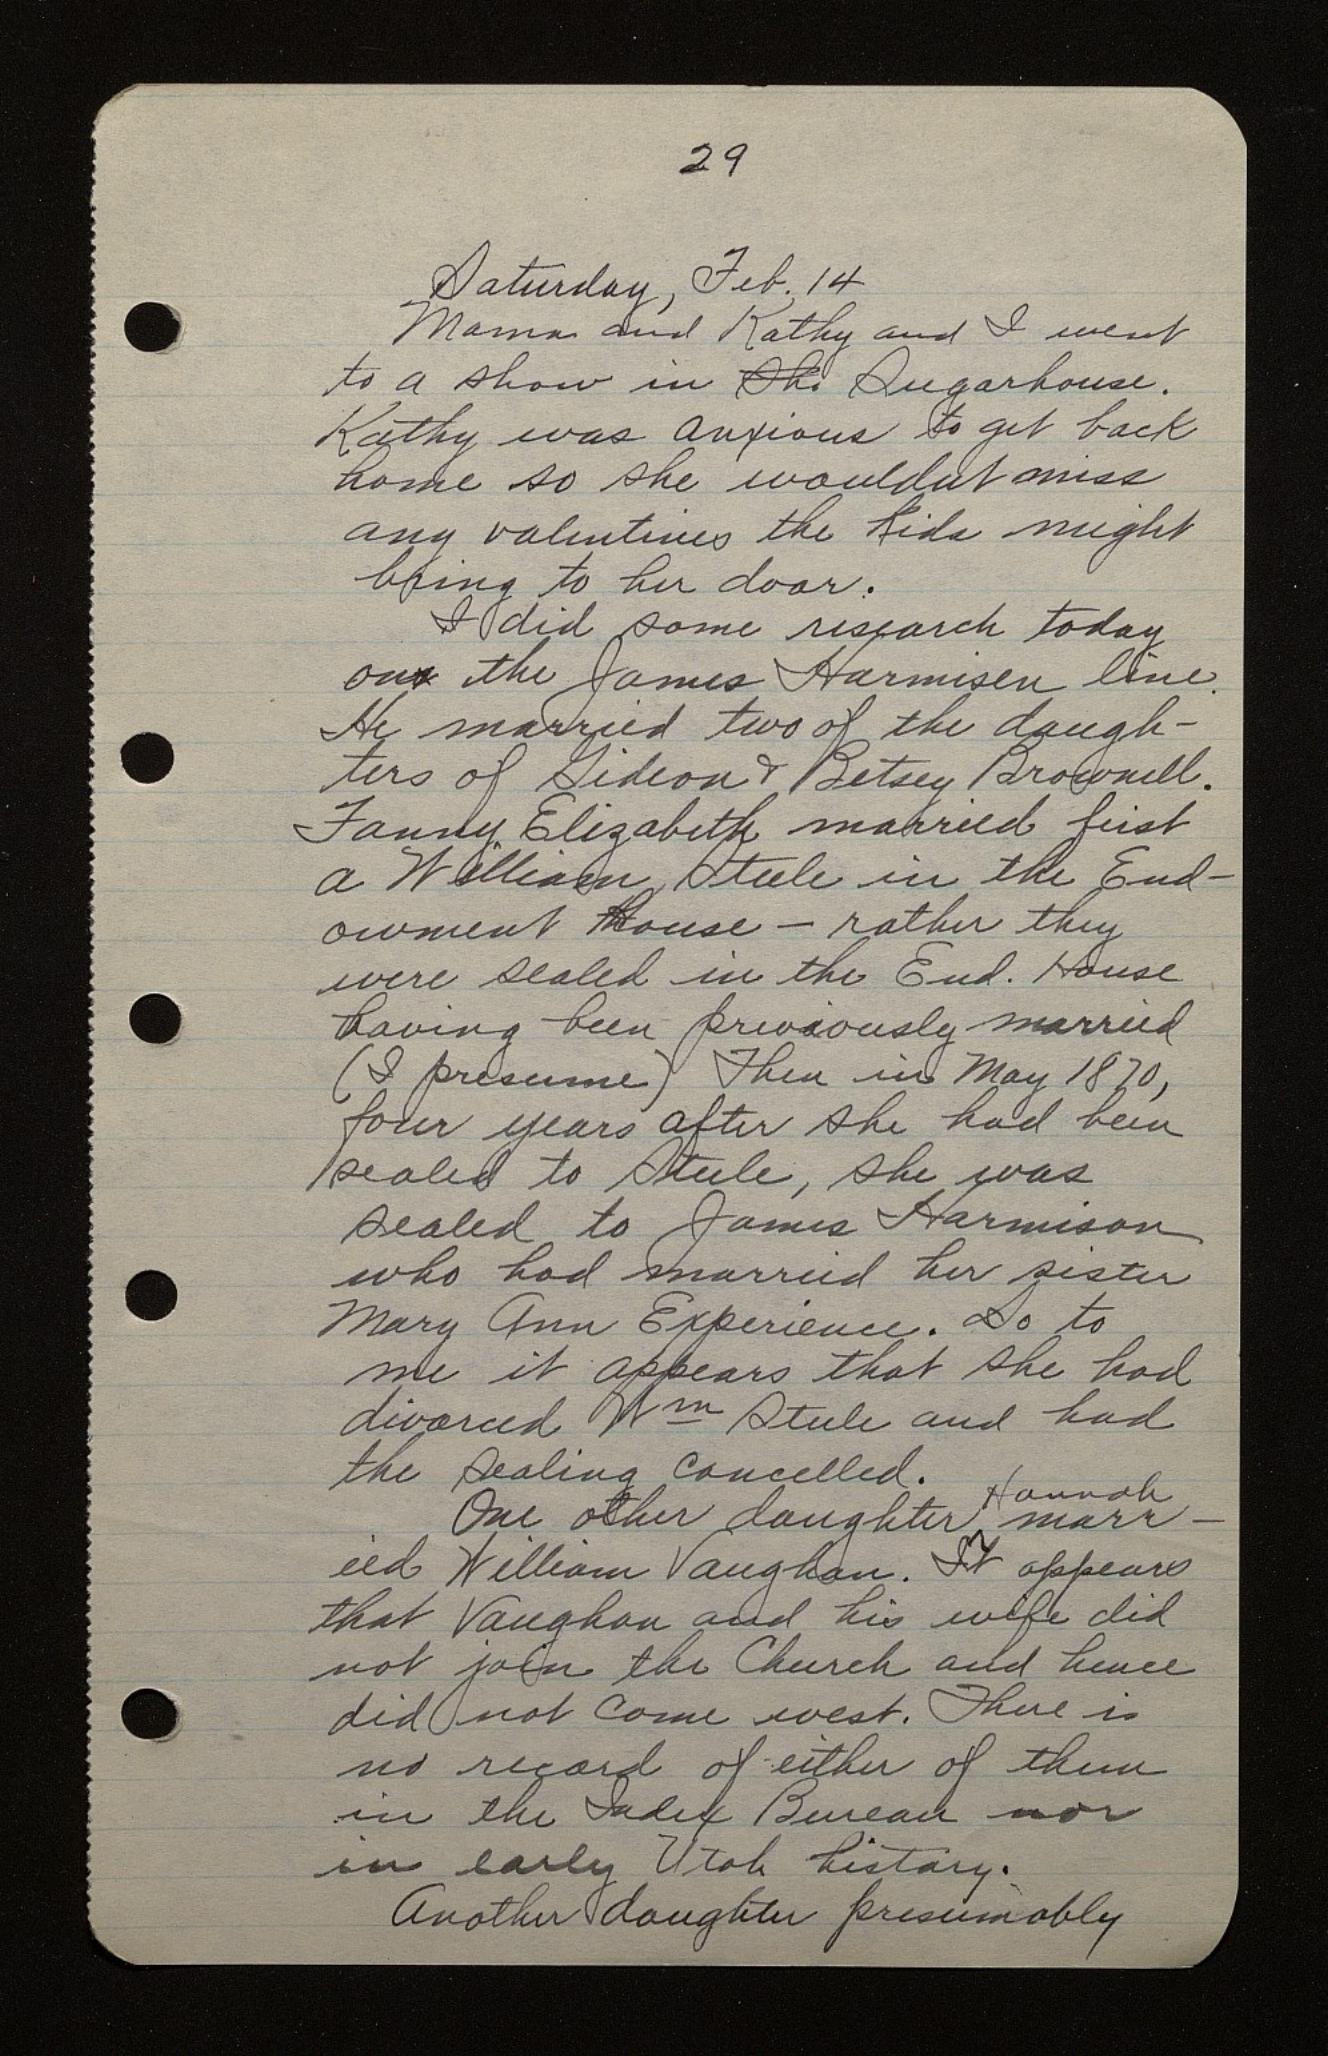 29
Saturday, Feb. 14
Mama and Kathy and I went
to a show in Sho Sugarhouse.
Kathy was anxious to get back
home so she wouldnt miss
any valentines the kids might
bring to her door.
I did some research today
on the James Harmisen line.
He married two of the daugh-
ters of Gideon & Betsey Brownell.
Fanny Elizabeth married first
a William Steele in the End-
owment House — rather they
were sealed in the End. House
having been previously married
(I presume) Then in May 1870,
four years after she had been
sealed to Steele, she was
sealed to James Harmison
who had married her sister
Mary Ann Experience. So to
me it appears that she had
divorced Wm Steele and had
the sealing cancelled.
One other daughter Hannah marr-
ied William Vaughan. It appears
that Vaughan and his wife did
not join the Church and hence
did not come west. There is
no record of either of them
in the Index Bureau nor
in early Utah history.
Another daughter presumably